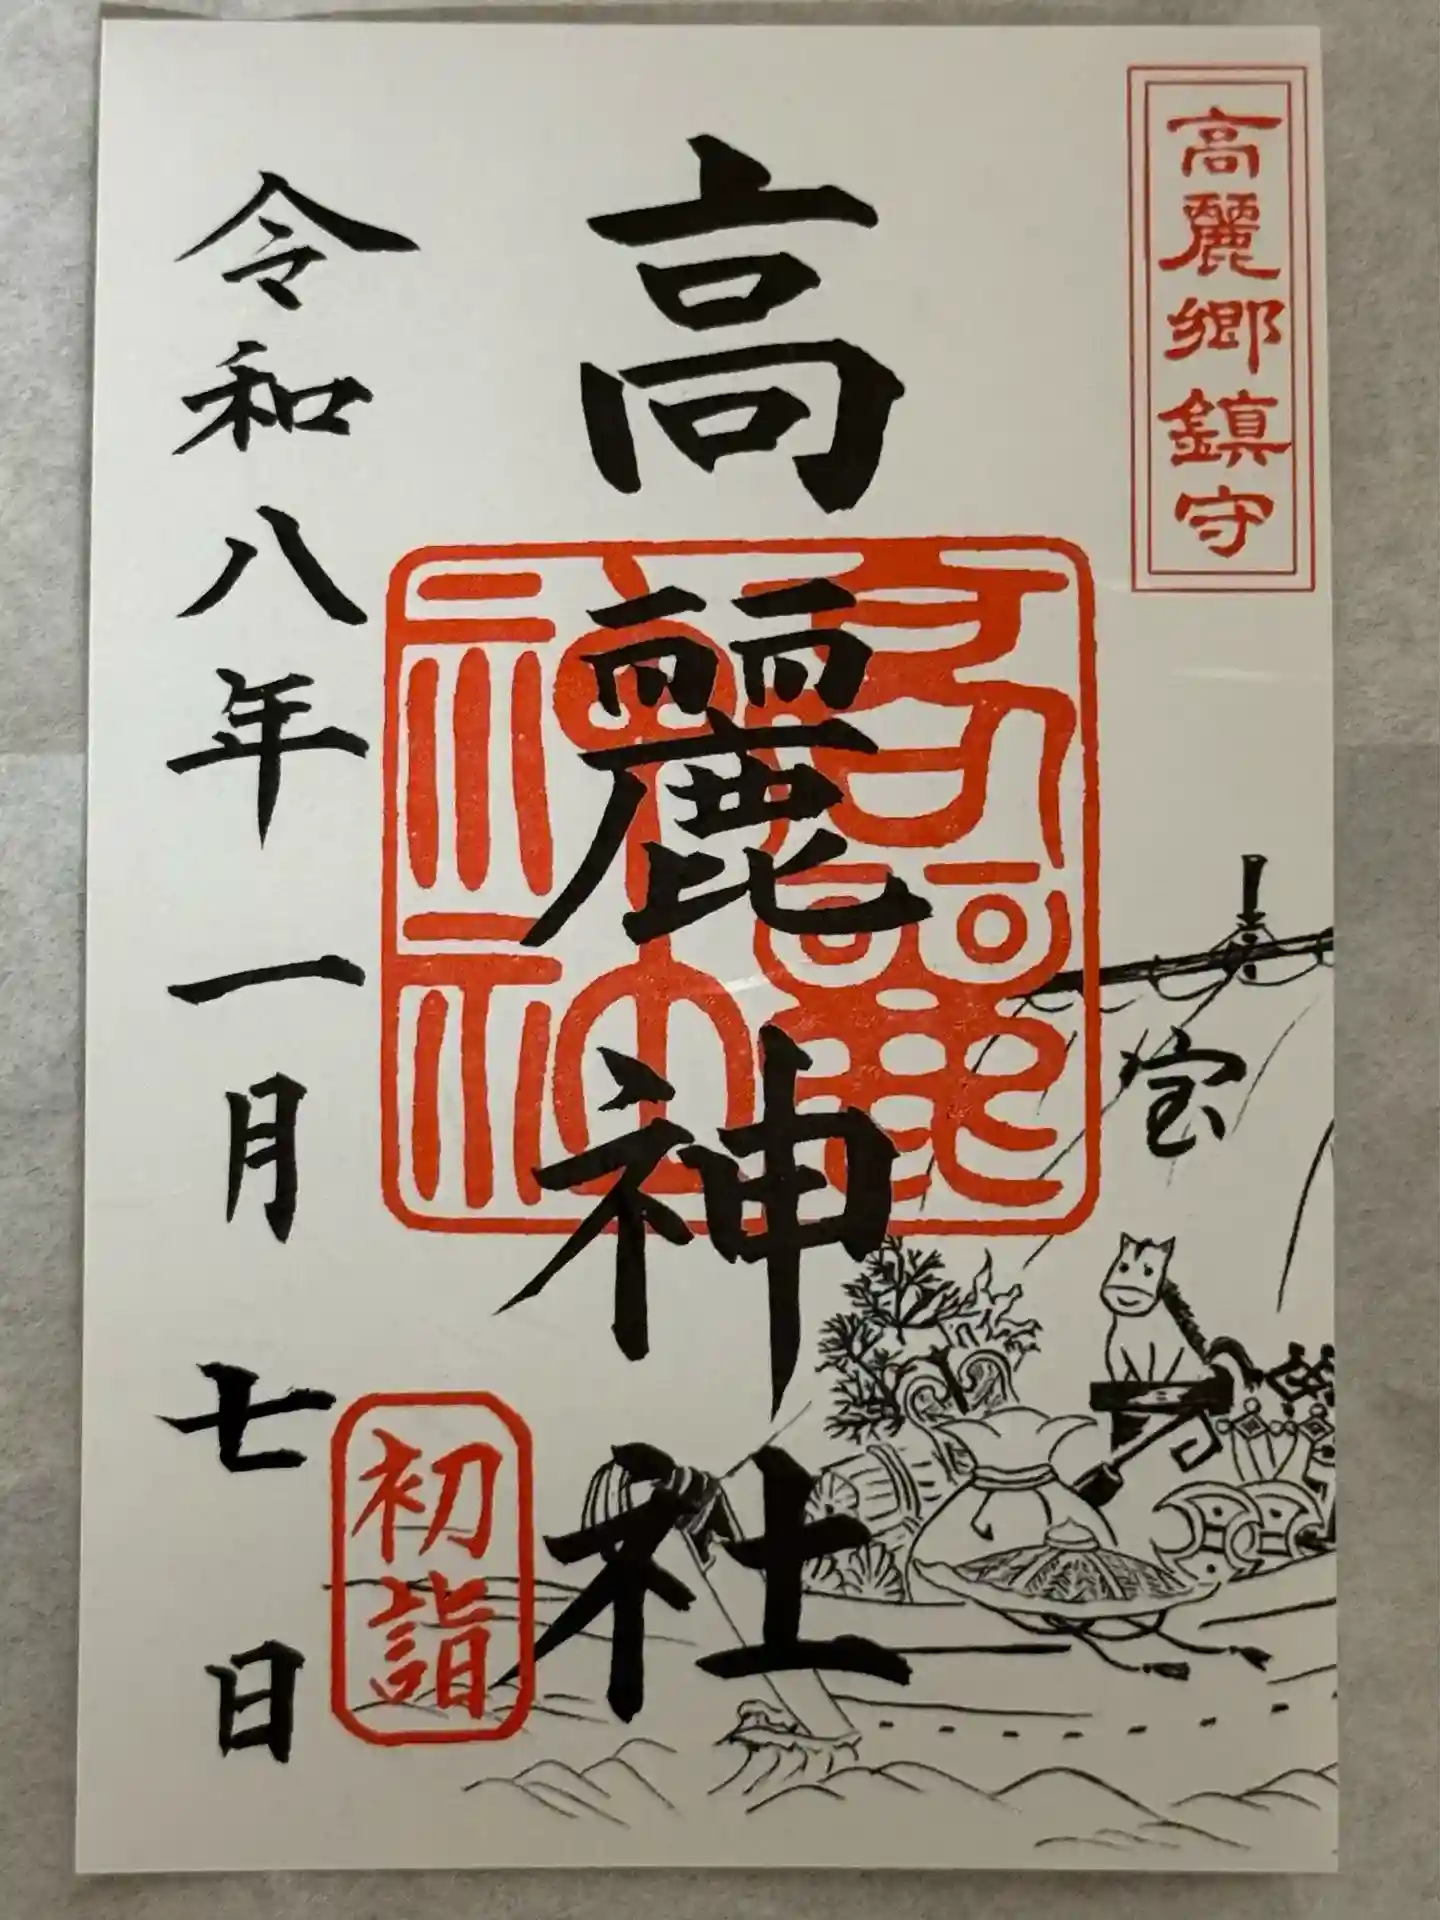 高麗郷鎮守
宝
高麗神社
高麗神社
初詣
令和八年一月七日